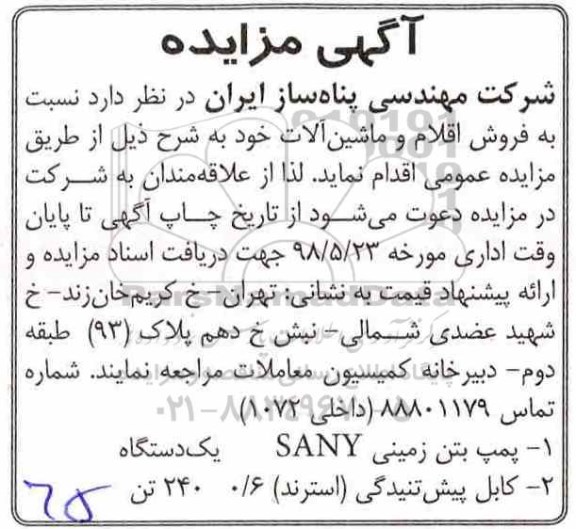 آگهی مزایده
شرکت مهندسی پناه‌ساز ایران در نظر دارد نسبت
به فروش اقلام و ماشین‌آلات خود به شرح ذیل از طریق
مزایده عمومی اقدام نماید. لذا از علاقه‌مندان به شرکت
در مزایده دعوت می‌شود از تاریخ چاپ آگهی تا پایان
وقت اداری مورخه ۹۸/۵/۲۳ جهت دریافت اسناد مزایده و
ارائه پیشنهاد قیمت به نشانی: تهران- خ کریم‌خان‌زند- خ
شهید عضدی شمالی- نبش خ دهم پلاک (۹۳) طبقه
دوم- دبیرخانه کمیسیون معاملات مراجعه نمایند. شماره
تماس ۸۸۸۰۱۱۷۹ (داخلی ۱۰۷۲)
۱- پمپ بتن زمینی SANY یک‌دستگاه
۲- کابل پیش‌تنیدگی (استرند) ۰/۶ ۲۴۰ تن